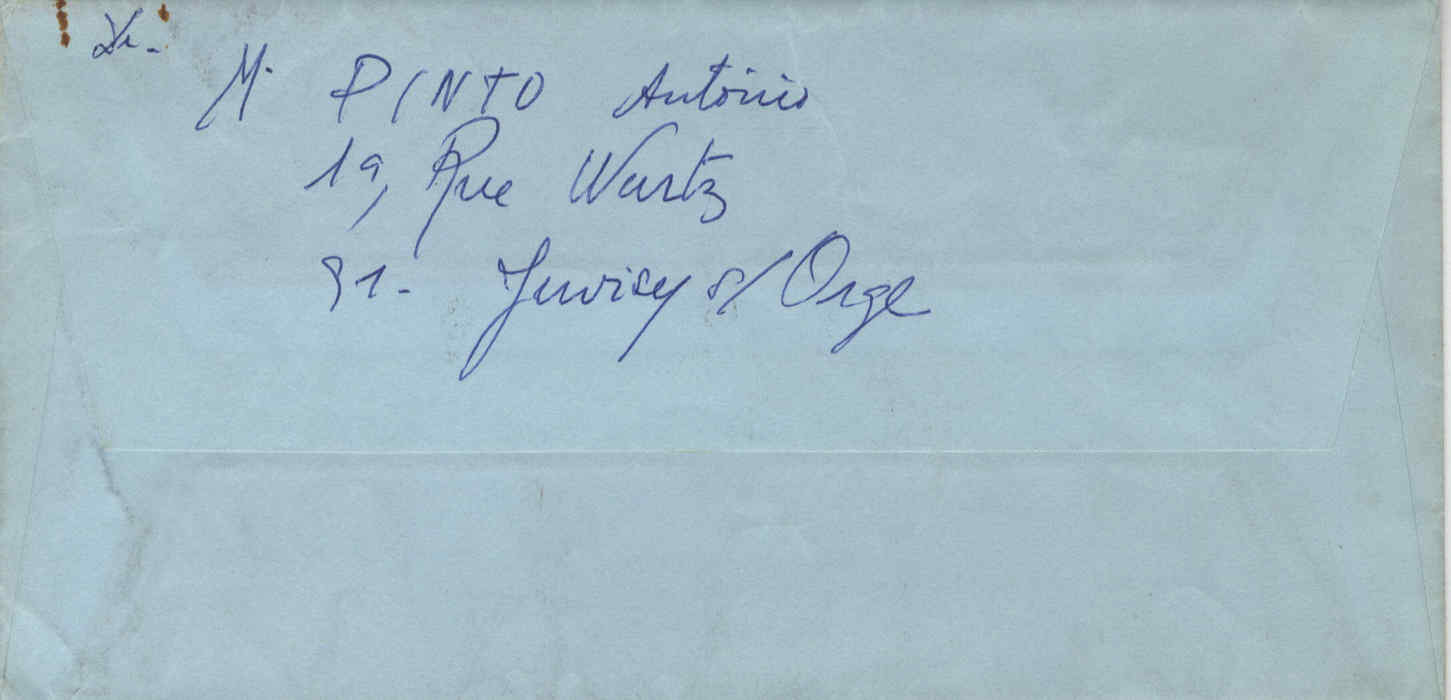 M. PINTO António
19, Rue Wurtz
91- Juvisy s/ Orge